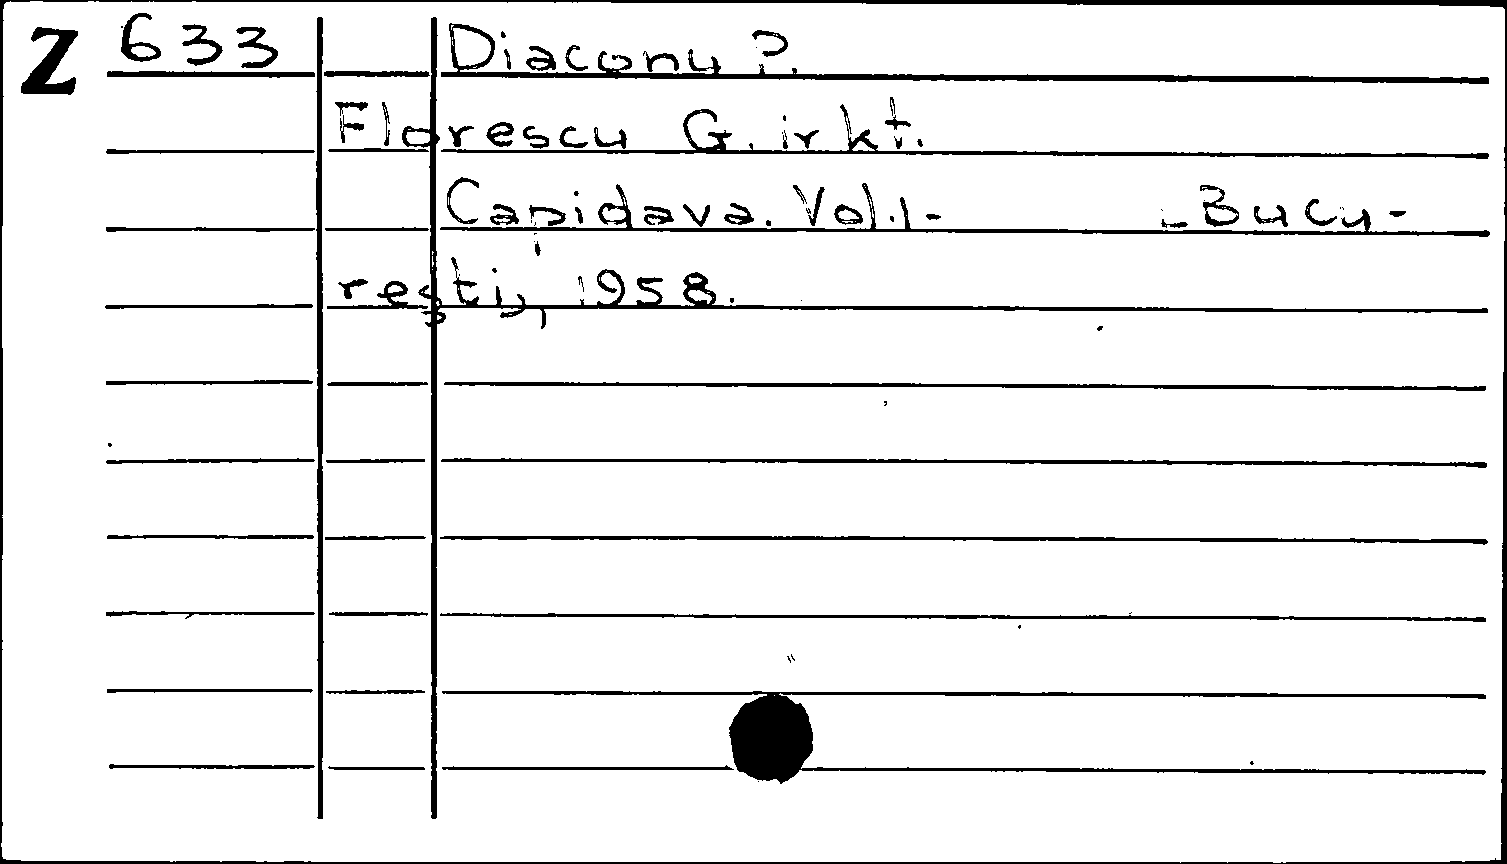 Z 633 Diaconu P.
Florescu G. ir kt.
Capidava. Vol.1- -Bucu-
reşti, 1958.